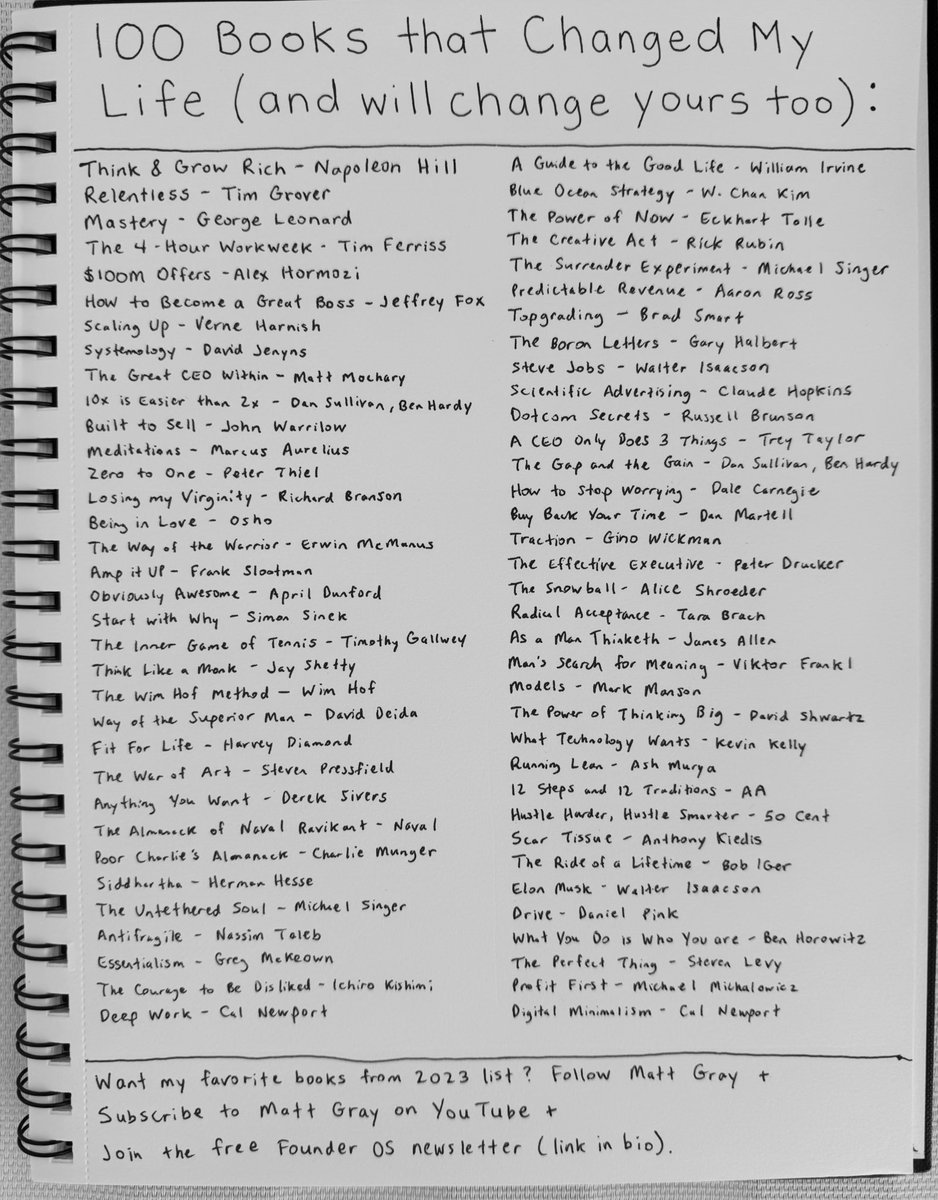 100 Books that Changed My
Life (and will change yours too):
Think & Grow Rich - Napoleon Hill
Relentless - Tim Grover
Mastery - George Leonard
The 4-Hour Workweek - Tim Ferriss
$100M Offers - Alex Hormozi
How to Become a Great Boss - Jeffrey Fox
Scaling Up - Verne Harnish
Systemology - David Jenyns
The Great CEO Within - Matt Mochary
10x is Easier than 2x - Dan Sullivan, Ben Hardy
Built to Sell - John Warrilow
Meditations - Marcus Aurelius
Zero to One - Peter Thiel
Losing my Virginity - Richard Branson
Being in Love - Osho
The Way of the Warrior - Erwin McManus
Amp it UP - Frank Slootman
Obviously Awesome - April Dunford
Start with Why - Simon Sinek
The Inner Game of Tennis - Timothy Gallwey
Think Like a Monk - Jay Shetty
The Wim Hof Method - Wim Hof
Way of the Superior Man - David Deida
Fit For Life - Harvey Diamond
The War of Art - Steven Pressfield
Anything You Want - Derek Sivers
The Almanack of Naval Ravikant - Naval
Poor Charlie's Almanack - Charlie Munger
Siddhartha - Herman Hesse
The Untethered Soul - Michael Singer
Antifragile - Nassim Taleb
Essentialism - Greg McKeown
The Courage to Be Disliked - Ichiro Kishimi
Deep Work - Cal Newport
A Guide to the Good Life - William Irvine
Blue Ocean Strategy - W. Chan Kim
The Power of Now - Eckhart Tolle
The Creative Act - Rick Rubin
The Surrender Experiment - Michael Singer
Predictable Revenue - Aaron Ross
Topgrading - Brad Smart
The Boron Letters - Gary Halbert
Steve Jobs - Walter Isaacson
Scientific Advertising - Claude Hopkins
Dotcom Secrets - Russell Brunson
A CEO Only Does 3 Things - Trey Taylor
The Gap and the Gain - Dan Sullivan, Ben Hardy
How to Stop Worrying - Dale Carnegie
Buy Back Your Time - Dan Martell
Traction - Gino Wickman
The Effective Executive - Peter Drucker
The Snowball - Alice Shroeder
Radical Acceptance - Tara Brach
As a Man Thinketh - James Allen
Man's Search for Meaning - Viktor Frankl
Models - Mark Manson
The Power of Thinking Big - David Shwartz
What Technology Wants - Kevin Kelly
Running Lean - Ash Murya
12 Steps and 12 Traditions - AA
Hustle Harder, Hustle Smarter - 50 Cent
Scar Tissue - Anthony Kiedis
The Ride of a Lifetime - Bob IGer
Elon Musk - Walter Isaacson
Drive - Daniel Pink
What You Do is Who You are - Ben Horowitz
The Perfect Thing - Steven Levy
Profit First - Michael Michalowicz
Digital Minimalism - Cal Newport
Want my favorite books from 2023 list? Follow Matt Gray +
Subscribe to Matt Gray on YouTube +
Join the free Founder OS newsletter (link in bio).